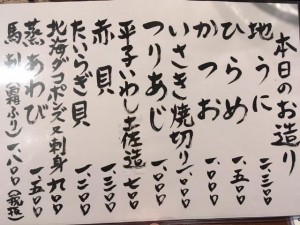 本日のお造り
地うに 二.三〇〇
ひらめ 一.五〇〇
かつお 一.〇〇〇
いさき焼切り 一.〇〇〇
つりあじ 一.〇〇〇
平子いわし土佐造 七〇〇
赤貝 一.三〇〇
たいらぎ貝 一.二〇〇
北海ダコポンズ又刺身 九〇〇
蒸あわび 一.五〇〇
馬刺(霜ふり) 一.八〇〇